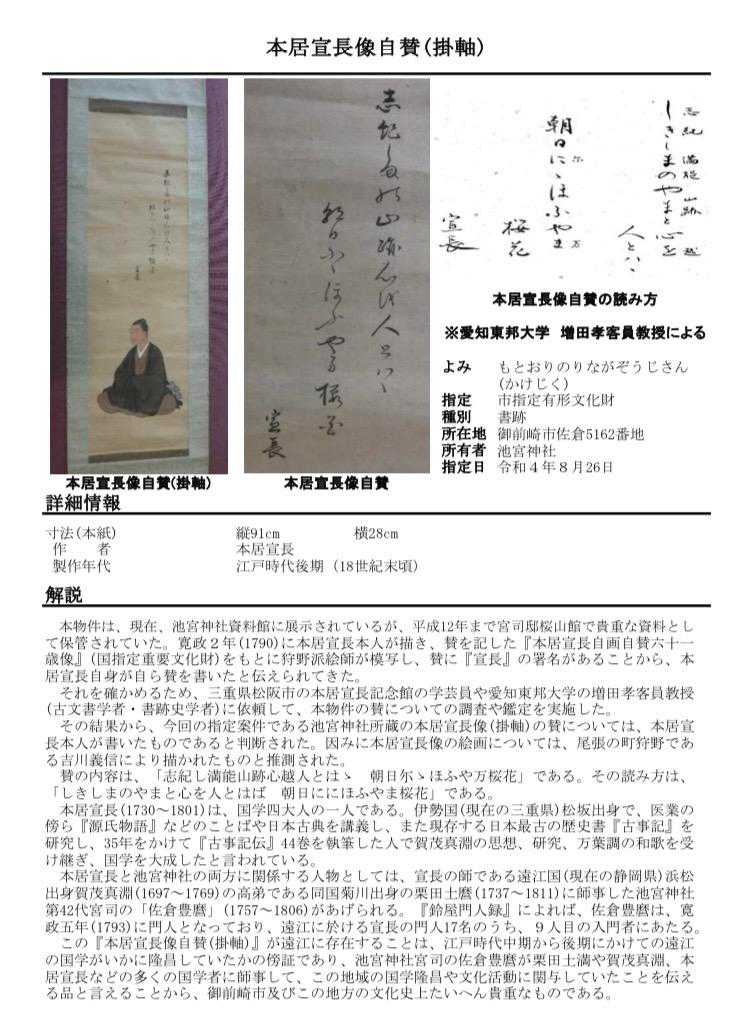 本居宣長像自賛(掛軸)
志紀し満能山跡心越人とはゝ
朝日尓ゝほふや万桜花
宣長
志紀 満能 山跡 越
しきしまのやまと心を
人とハゝ
尓 万
朝日にゝほふやま
桜花
宣長
本居宣長像自賛の読み方
※愛知東邦大学 増田孝客員教授による
よみ もとおりのりながぞうじさん
(かけじく)
指定 市指定有形文化財
種別 書跡
所在地 御前崎市佐倉5162番地
所有者 池宮神社
指定日 令和４年８月26日
本居宣長像自賛(掛軸) 本居宣長像自賛
詳細情報
寸法(本紙) 縦91cm 横28cm
作 者 本居宣長
製作年代 江戸時代後期 (18世紀末頃)
解説
本物件は、現在、池宮神社資料館に展示されているが、平成12年まで宮司邸桜山館で貴重な資料とし
て保管されていた。寛政２年(1790)に本居宣長本人が描き、賛を記した『本居宣長自画自賛六十一
歳像』(国指定重要文化財)をもとに狩野派絵師が模写し、賛に『宣長』の署名があることから、本
居宣長自身が自ら賛を書いたと伝えられてきた。
それを確かめるため、三重県松阪市の本居宣長記念館の学芸員や愛知東邦大学の増田孝客員教授
(古文書学者・書跡史学者)に依頼して、本物件の賛についての調査や鑑定を実施した。
その結果から、今回の指定案件である池宮神社所蔵の本居宣長像(掛軸)の賛については、本居宣
長本人が書いたものであると判断された。因みに本居宣長像の絵画については、尾張の町狩野であ
る吉川義信により描かれたものと推測された。
賛の内容は、「志紀し満能山跡心越人とはゝ　朝日尓ゝほふや万桜花」である。その読み方は、
「しきしまのやまと心を人とはば　朝日ににほふやま桜花」である。
本居宣長(1730～1801)は、国学四大人の一人である。伊勢国(現在の三重県)松坂出身で、医業の
傍ら『源氏物語』などのことばや日本古典を講義し、また現存する日本最古の歴史書『古事記』を
研究し、35年をかけて『古事記伝』44巻を執筆した人で賀茂真淵の思想、研究、万葉調の和歌を受
け継ぎ、国学を大成したと言われている。
本居宣長と池宮神社の両方に関係する人物としては、宣長の師である遠江国(現在の静岡県)浜松
出身賀茂真淵(1697～1769)の高弟である同国菊川出身の栗田土麿(1737～1811)に師事した池宮神社
第42代宮司の「佐倉豊麿」(1757～1806)があげられる。『鈴屋門人録』によれば、佐倉豊麿は、寛
政五年(1793)に門人となっており、遠江に於ける宣長の門人17名のうち、９人目の入門者にあたる。
この『本居宣長像自賛(掛軸)』が遠江に存在することは、江戸時代中期から後期にかけての遠江
の国学がいかに隆昌していたかの傍証であり、池宮神社宮司の佐倉豊麿が栗田土満や賀茂真淵、本
居宣長などの多くの国学者に師事して、この地域の国学隆昌や文化活動に関与していたことを伝え
る品と言えることから、御前崎市及びこの地方の文化史上たいへん貴重なものである。